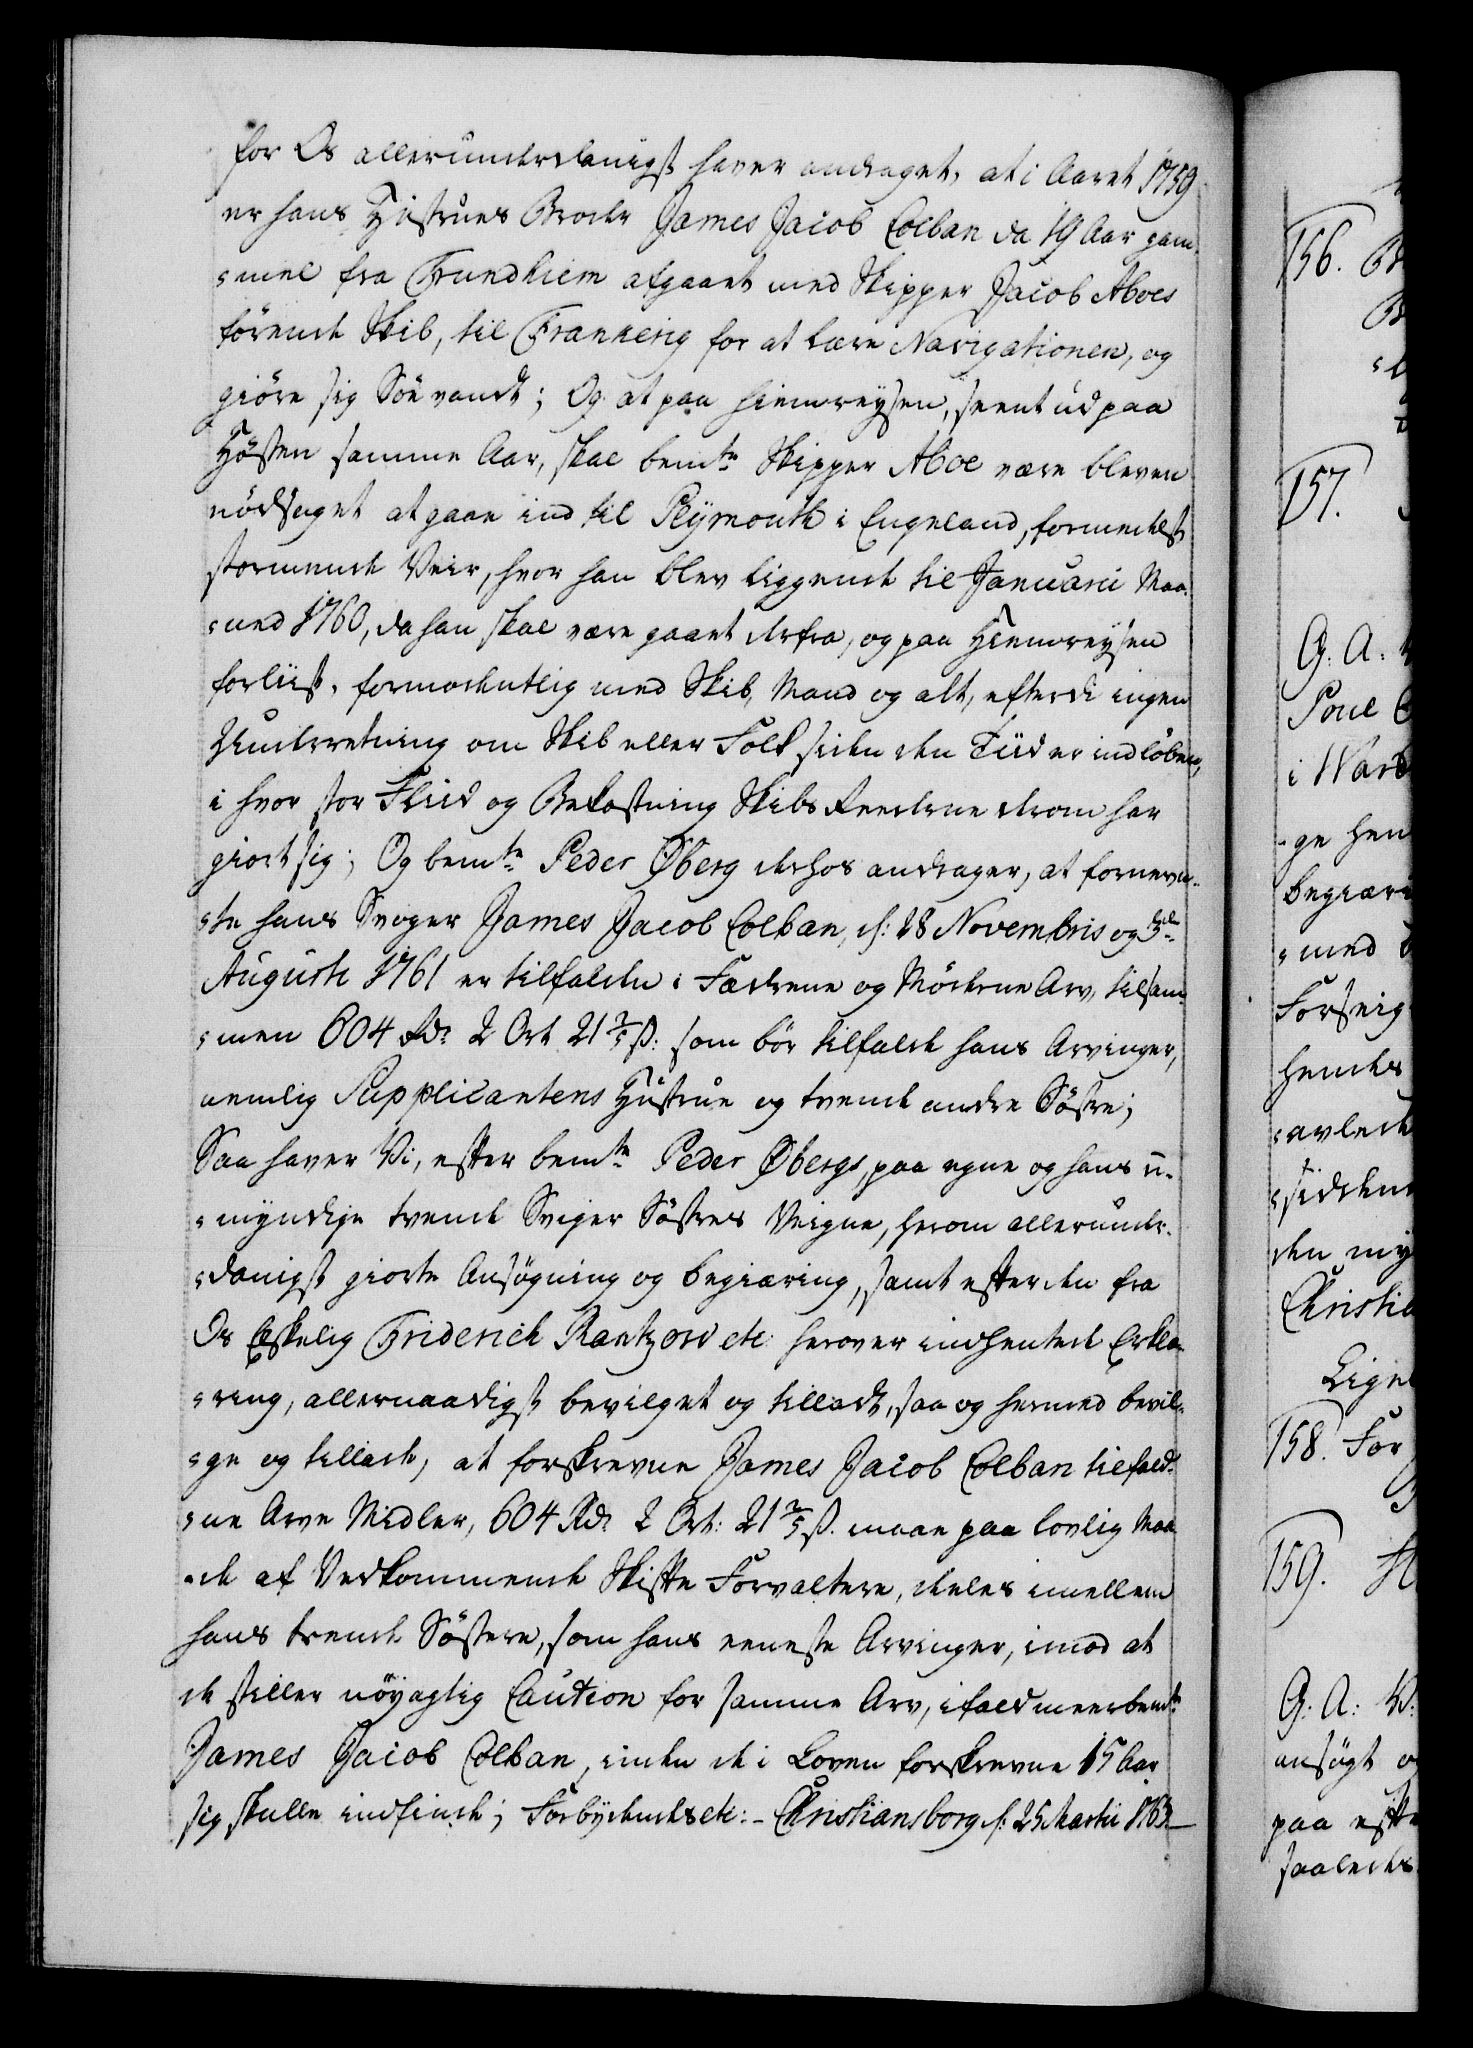 for Os allerunderdanigst haver andraget, at i Aaret 1759
er hans Hustrues Broder James Jacob Colban da 19 Aar gam-
-mel fra Trundhiem afgaaet med Skipper Jacob Aboes
førende Skib, til Frankerig for at lære Navigationen, og
giöre sig Söe vandt; Og at paa hiemreysen, seent ud paa
Hösten samme Aar, skal bemte Skipper Aboe være bleven
nödsaget at gaae ind til Plymouth i Engeland, formedelst
stormende Veir, hvor han blev liggende til Januarii Maa-
-ned 1760, da han skal være gaaet derfra, og paa Hiemreysen
forliist, formodentlig med Skib, Mand og alt, efterdi ingen
Underretning om Skib eller Folk siden den Tiid er indløben,
i hvor stor Fliid og Bekostning Skibs Reederne derom har
giort sig; Og bemte Peder Øberg derhos andrager, at fornevn-
-te hans Svoger James Jacob Colban, d: 28 Novembris og 3de
Augusti 1761 er tilfalden i Fædrene og Möderne Arv, tilsam-
-men 604 Rdr 2 Ort 21 2/5 s: som bör tilfalde hans Arvinger,
nemlig Supplicantens Hustrue og tvende andre Söstre;
Saa haver Vi, efter bemte Peder Øbergs, paa egne og hans u-
-myndige tvende Sviger Söstres Veigne, herom allerunder-
-danigst giorte Ansøgning og begiæring, samt efter den fra
Os Elskelig Friderich Rantzow etc: herover indhentede Erklæ-
-ring, allernaadigst bevilget og tilladt, saa og hermed bevil-
-ge og tillade, at forskrevne James Jacob Colban tilfald-
-ne Arve Midler, 604 Rdr 2 Ort: 21 2/5 s. maae paa lovlig Maa-
-de af Vedkommende Skifte Forvaltere, deeles imellem
hans trende Söstere, som hans eeneste Arvinger, imod at
de stiller nöyagtig Caution for samme Arv, ifald meerbemte
James Jacob Colban, inden de i Loven forskrevne 15 Aar
sig skulle indfinde; Forbydendes etc: - Christiansborg d: 25 Martii 1763.
156.
157.
G: A: V
Poul
i Ward
-ge hen
begiær
-med
Forseig
hendes
-avlede
-sidden
den my
Christia
Lige
158. For
159.
G: A: V:
ansøgt o
paa efte
saaledes